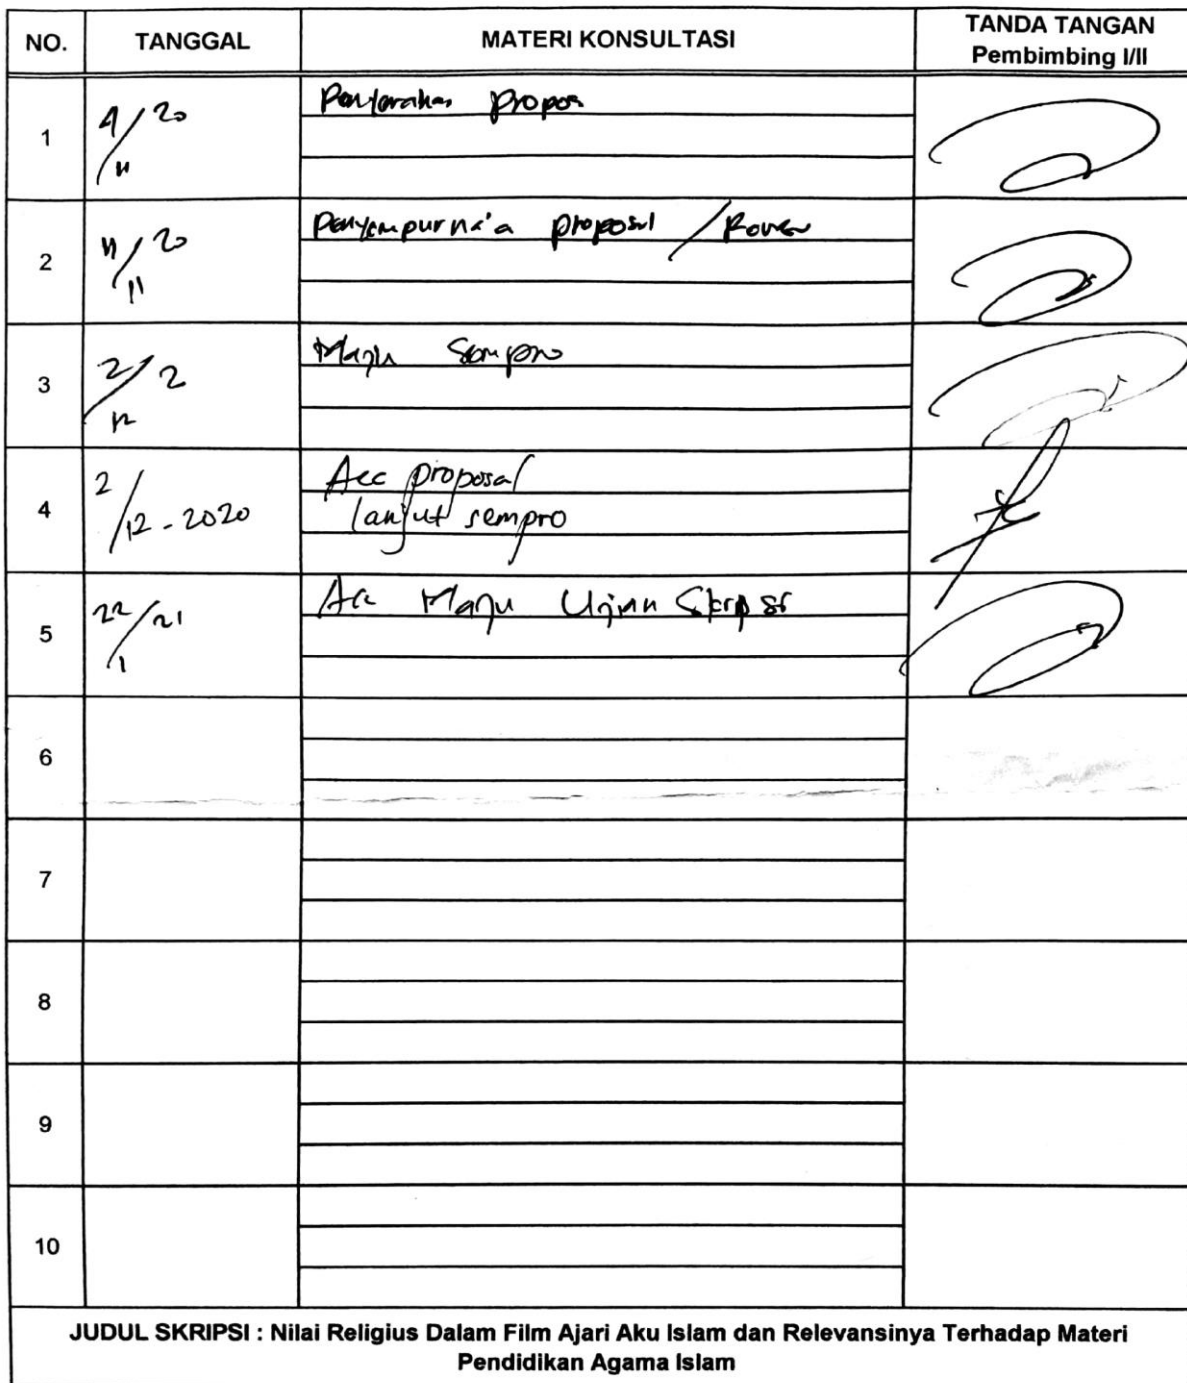 NO. TANGGAL MATERI KONSULTASI TANDA TANGAN
Pembimbing I/II
1 4/11 20 Penyerahan propos
2 11/11 20 proposal /
3 2/12 2 Maju Sempro
4 2/12-2020 Acc proposal
lanjut sempro
5 22/1 21 Acc Maju Ujian Skripsi
6
7
8
9
10
JUDUL SKRIPSI : Nilai Religius Dalam Film Ajari Aku Islam dan Relevansinya Terhadap Materi
Pendidikan Agama Islam